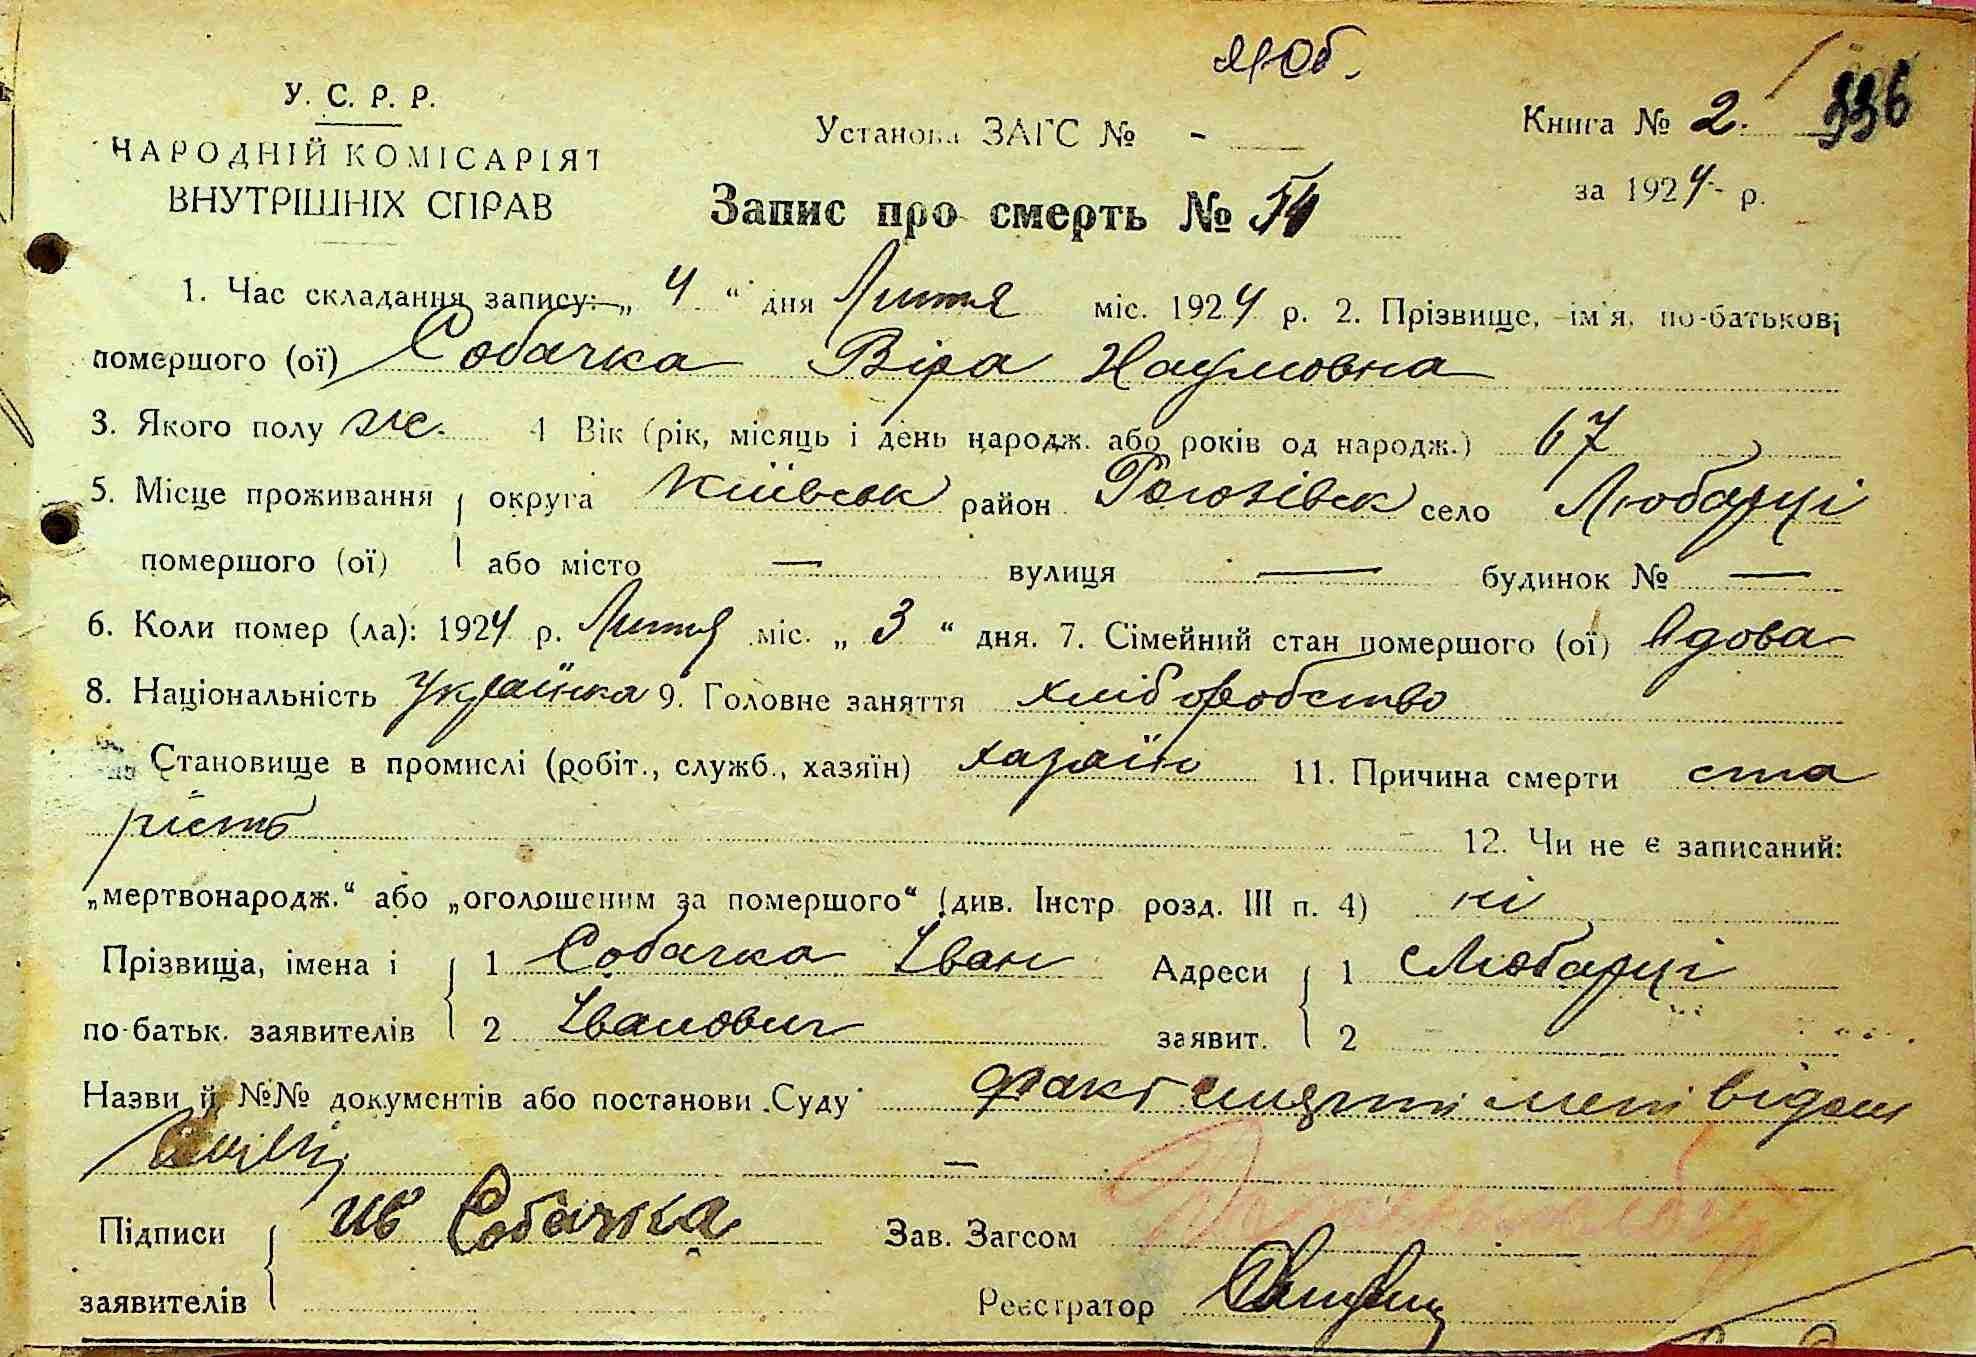 Люб.
У. С. Р. Р.
НАРОДНІЙ КОМІСАРІЯТ
ВНУТРІШНІХ СПРАВ
Установа ЗАГС № -
Книга № 2. 336
за 1924 р.
Запис про смерть № 54
1. Час складання запису: „ 4 “ дня Лютня міс. 1924 р. 2. Прізвище, ім'я, по-батькові
помершого (ої) Собачка Віра Наумовна
3. Якого полу жс. 4 Вік (рік, місяць і день народж. або років од народж.) 67
5. Місце проживання округа Київськ район Рогозівськ село Любарці
помершого (ої) або місто — вулиця — будинок № —
6. Коли помер (ла): 1924 р. Лютня міс. „ 3 “ дня. 7. Сімейний стан помершого (ої) вдова
8. Національність Українка 9. Головне заняття хліборобство
Становище в промислі (робіт., служб., хазяїн) хазяїн 11. Причина смерти ста
рість 12. Чи не є записаний:
„мертвонародж.“ або „оголошеним за помершого“ (див. Інстр розд. III п. 4) ні
Прізвища, імена і 1 Собачка Іван Адреси 1 с Любарці
по-батьк. заявителів 2 Іванович заявит. 2
Назви й №№ документів або постанови Суду факт смерти мені відом
Підписи Ив Собачка Зав. Загсом
заявителів Реєстратор